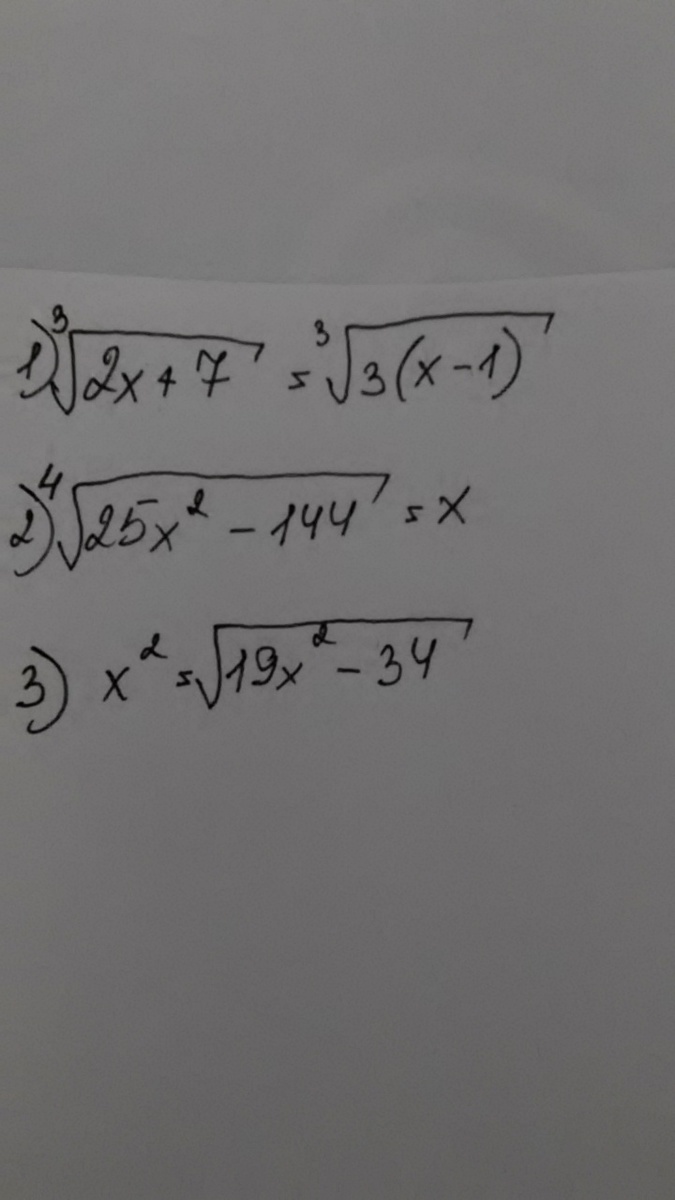 1) ∛(2x + 7) = ∛(3(x - 1))
2) ∜(25x² - 144) = x
3) x² = √(19x² - 34)